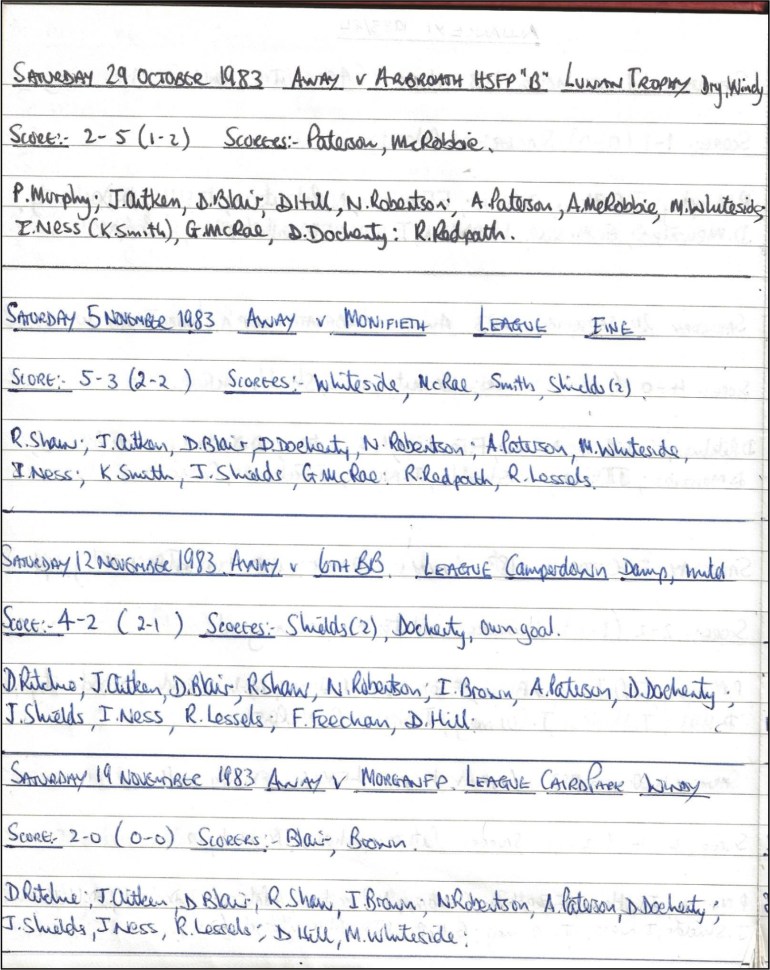 SATURDAY 29 OCTOBER 1983 AWAY v ARBROATH HSFP "B" LUNAN TROPHY Dry, Windy
SCORE:- 2-5 (1-2) SCORERS:- Paterson, McRobbie.
P. Murphy; J. Aitken, D. Blair, D Hill, N. Robertson; A. Paterson, A. McRobbie, M. Whiteside;
I. Ness (K. Smith), G. McRae, D. Docherty: R. Redpath.
SATURDAY 5 NOVEMBER 1983 AWAY v MONIFIETH LEAGUE FINE
SCORE:- 5-3 (2-2) SCORERS:- Whiteside, McRae, Smith, Shields (2).
R. Shaw; J. Aitken, D. Blair, D. Docherty, N. Robertson; A. Paterson, M. Whiteside,
I. Ness; K Smith, J. Shields, G. McRae: R. Redpath, R. Lessels.
SATURDAY 12 NOVEMBER 1983 AWAY v 6TH BB. LEAGUE Camperdown Damp, mild
SCORE:- 4-2 (2-1) SCORERS:- Shields (2), Docherty, own goal.
D. Ritchie; J. Aitken, D. Blair, R. Shaw, N. Robertson; I. Brown, A. Paterson, D. Docherty;
J. Shields, I. Ness, R. Lessels; F. Feechan, D. Hill:
SATURDAY 19 NOVEMBER 1983 AWAY v MORGAN FP. LEAGUE CAIRD PARK WINDY
SCORE:- 2-0 (0-0) SCORERS:- Blair, Brown.
D Ritchie: J. Aitken, D Blair, R. Shaw, I. Brown; N Robertson, A. Paterson, D. Docherty;
J. Shields, I Ness, R. Lessels; D Hill, M. Whiteside: